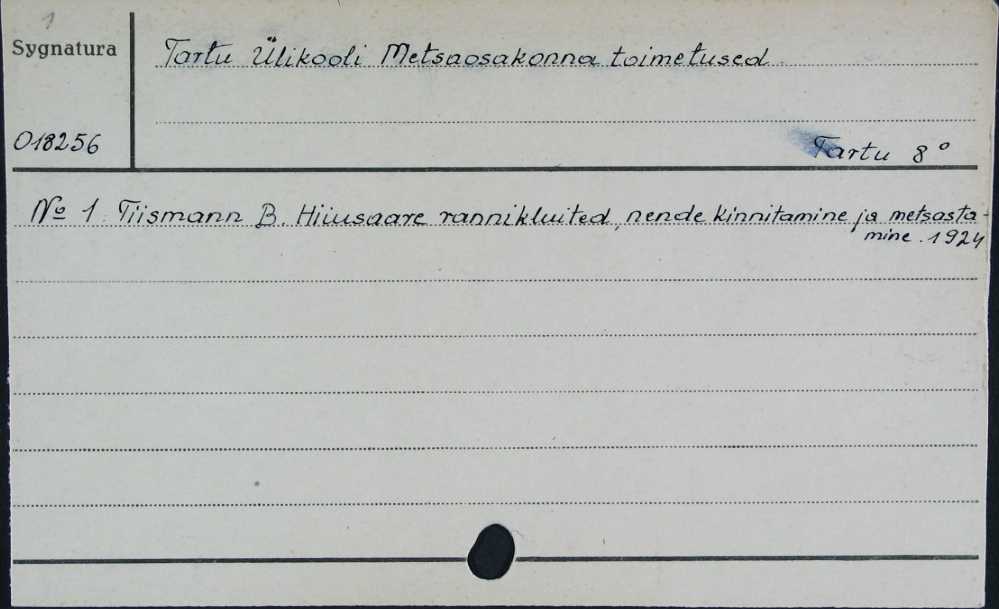 1
Sygnatura
Tartu Ülikooli Metsaosakonna toimetused.
018256
Tartu 8°
№ 1. Tiismann B. Hiiusaare rannikluited, nende kinnitamine ja metsasta-
mine. 1924